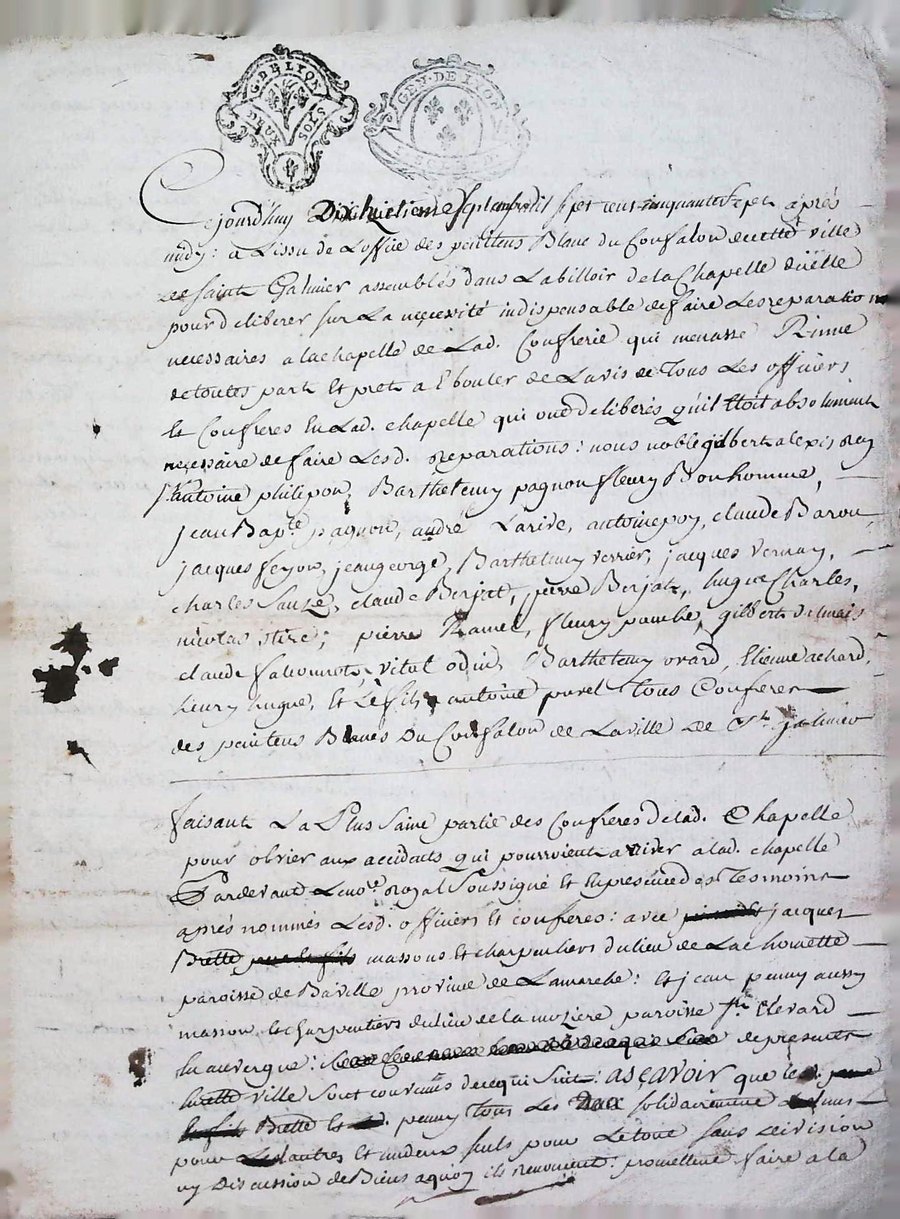 G. DE LYON
DEUX SOLS
GEN. DE LYON
Cejourd'huy Dixhuitieme Septembre mil sept cent cinquante sept après
midy: à Lissu de Loffice des penitens Blanc du Confalon de cette ville
de Saint Galmier assemblés dans Labilloir de la Chapelle d'icelle
pour deliberer sur La necessité indispensable de faire Les reparations
necessaires a la chapelle de Lad. Confrerie qui menasse Ruine
de toutes part Et pret a Ebouter de Lavis de Tous Les officiers
Et Confreres En Lad. chapelle qui ont deliberés qu'il Etoit absolument
necessaire de faire Lesd. reparations: nous noble gilbert alexis
antoine philipon, Barthelemy pagnon fleury Bonhomme,
jean Bapte. pagnon, andré Larive, antoine poy, claude Barou,
jacques feyou, jean george, Barthelemy verrier, jacques vernay,
charles Sauzé, claude Berjat, pierre Berjat, hugue Charles,
nicolas ; pierre Ramel, fleury ponche, gilbert
claude , vital odin, Barthelemy ovard, Etienne achard,
heury hugue, Et Le fils antoine purel Tous Confreres
des penitens Blancs Du Confalon de La ville De St. galmier
faisant La Plus Saine partie des Confreres de lad. Chapelle
pour obvier aux accidents qui pourroient ariver a lad. chapelle
Pardevant Le nore. royal Soussigné Et En presence des Tesmoins
après nommés Lesd. officiers Et confreres: avec jacques
Brette massons et charpentiers du lieu de La chouette
paroisse de Baville province de Lamarche: Et jean penny aussy
masson, Et charpentiers du lieu de la mozière paroisse
En auvergne: de present En
ville Sont convenus de ce qui Suit: asçavoir que
Brette Et penny Tous Les Deux solidairement
pour Lautres Et un deux seuls pour Le tout sans Division
ny Discussion de Biens a quoy ils renoncent: promettent faire a la